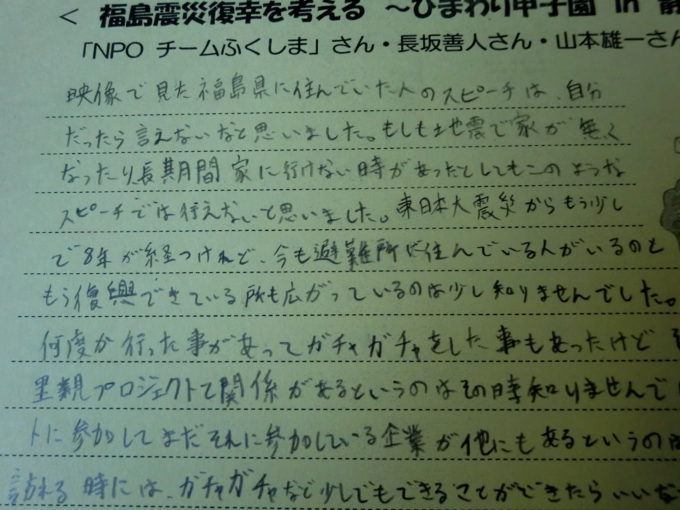 < 福島震災復幸を考える ~ひまわり甲子園 in 静
「NPO チームふくしま」さん・長坂善人さん・山本雄一さん
映像で見た福島県に住んでいた人のスピーチは、自分
だったら言えないなと思いました。もしも地震で家が無く
なったり長期間家に行けない時があったとしてもこのような
スピーチでは行えないと思いました。東日本大震災からもう少し
で8年が経つけれど、今も避難所に住んでいる人がいるのと
もう復興できている所も広がっているのは少し知りませんでした。
何度か行った事があってガチャガチャをした事もあったけど
里親プロジェクトと関係があるというのはその時知りませんで
トに参加してまだそれに参加している企業が他にもあるというの
訪れる時には、ガチャガチャなど少しでもできることができたらいいな